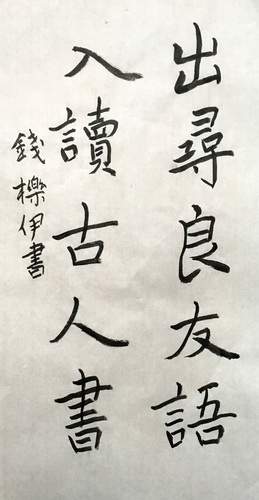 出尋良友語
入讀古人書
錢櫟伊書